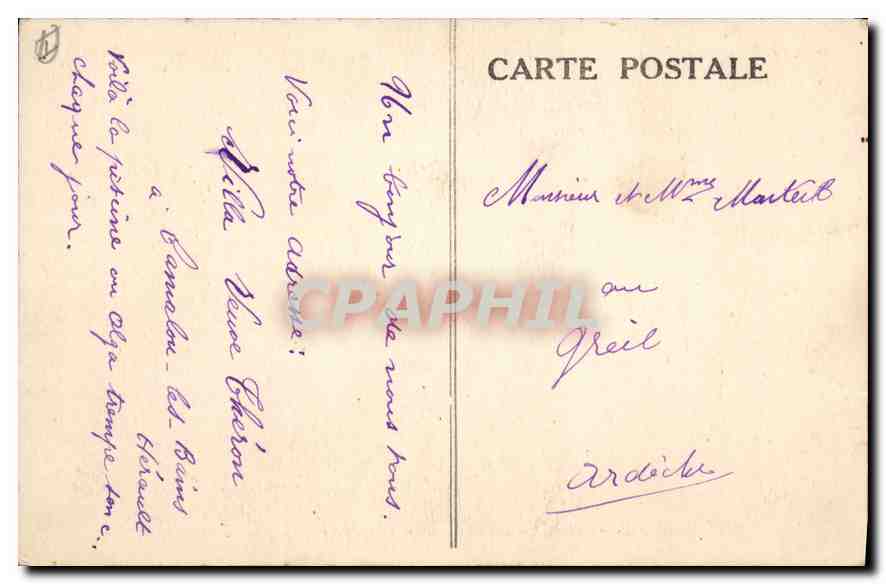 CARTE POSTALE
Un bonjour de nous tous.
Voici notre adresse :
Villa Veuve Théron
à Lamalou-les-Bains
Hérault
Voilà la piscine ou Olga trempe son c..
chaque jour.
Monsieur et Mme
au
Greil
Ardèche
CPAPHIL